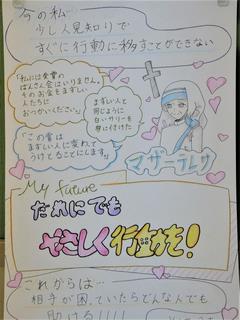 今の私…
少し人見知りで
すぐに行動に移すことができない
「私には受賞の
ばんさん会はいりません。
そのお金をまずしい
人たちに
おつかいください」
まずしい人と
同じように
白いサリーを
身に付けた
「この賞は
まずしい人に変わって
うけとることにします」
マザーテレサ
My future
だれにでも
やさしく行動を!
これからは…
相手が困っていたらどんな人でも
助ける!!!!